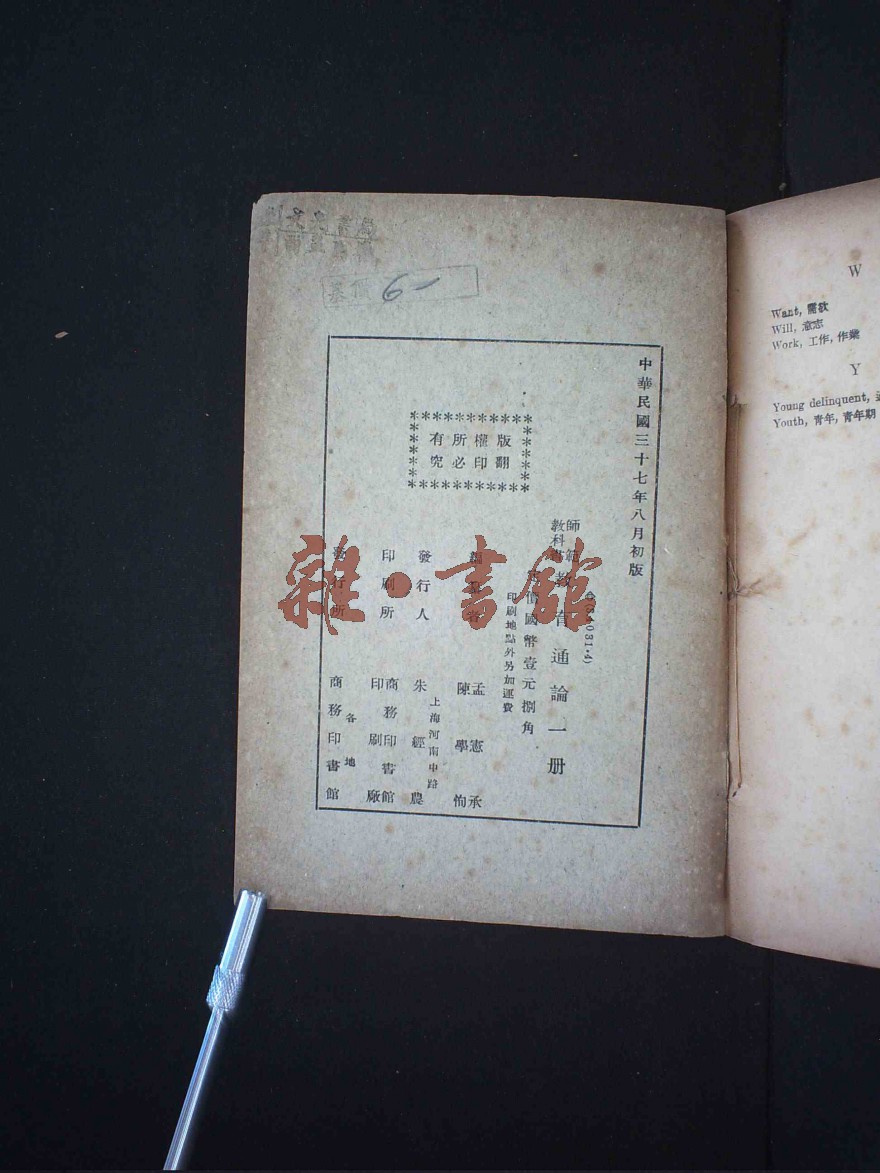 中華民國三十七年八月初版
版權所有
翻印必究
(64031·4)
師範
教科書
教育通論一册
定價國幣壹元捌角
印刷地點外另加運費
編著者
孟憲承
陳學恂
發行人
朱經農
上海河南中路
印刷所
商務印書館
印刷廠
發行所
商務印書館
各地
6
雜·書館
W
Want, 需欲
Will, 意志
Work, 工作, 作業
Y
Young delinquent,
Youth, 青年, 青年期